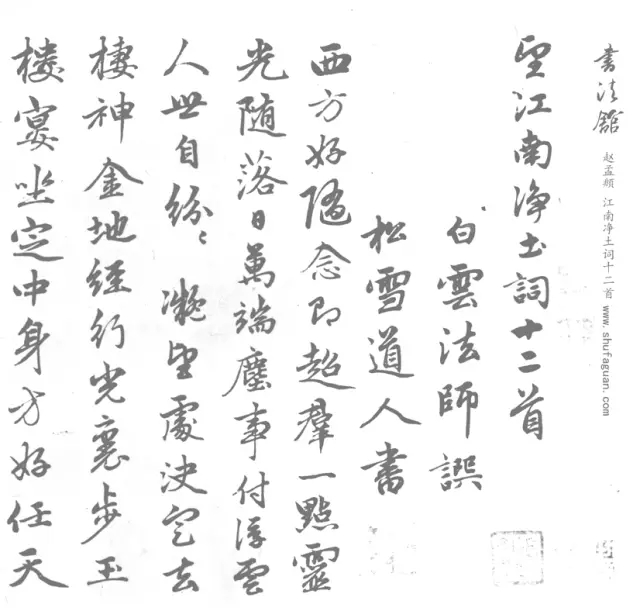 書法館
赵孟頫 江南净土词十二首 www.shufaguan.com
望江南净土詞十二首
白雲法師譔
松雪道人書
西方好随念即超羣一點靈
光随落日萬端塵事付浮雲
人世自紛〻凝望處決定去
棲神金地經行光裏步玉
楼宴坐定中身方好任天